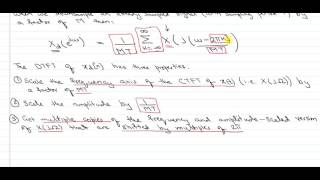 a factor of M then:
X_d(e^{jω}) = 1/MT ∑_{k=-∞}^{∞} X(j(ω-2πk)/MT)
The DTFT of x_d(n) has three properties.
① Scale the frequency axis of the CTFT of x(t) (i.e. X(jΩ)) by
a factor of MT
② Scale the amplitude by 1/MT
③ Get multiple copies of the frequency and amplitude-scaled version
of X(jΩ) that are shifted by multiples of 2π